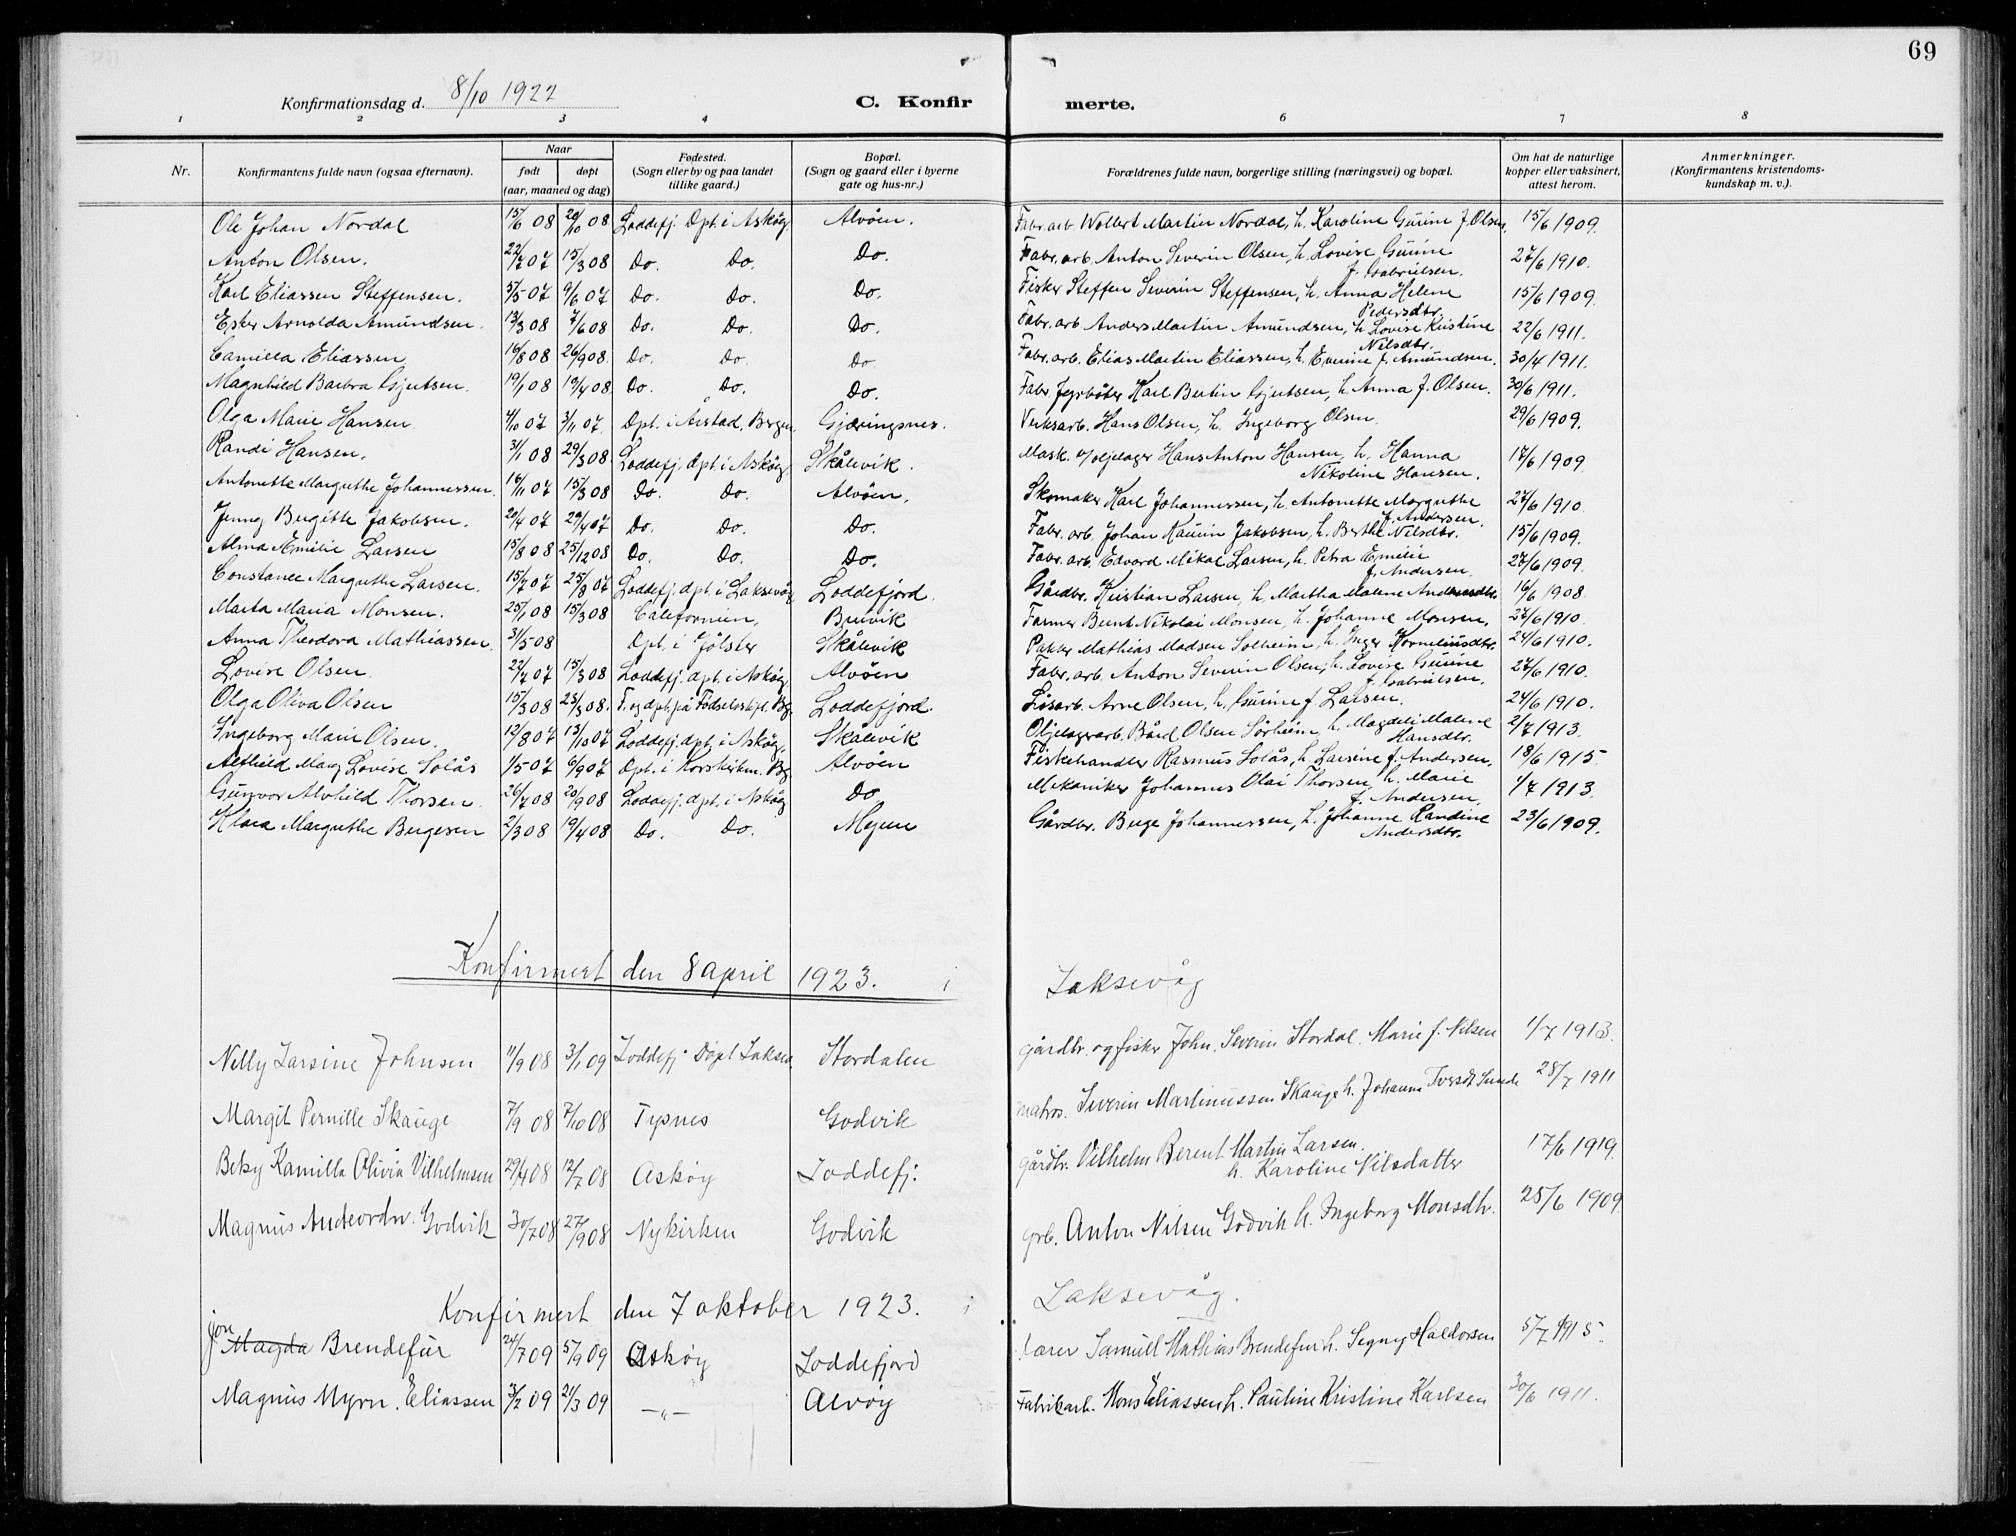 69
Konfirmationsdag d. 8/10 1922 C. Konfir merte.
1 2 3 4 6 7 8
Nr. Konfirmantens fulde navn (ogsaa efternavn). Naar født døpt (aar, maaned og dag) Fødested. (Sogn eller by og paa landet tillike gaard.) Bopæl. (Sogn og gaard eller i byerne gate og hus-nr.) Forældrenes fulde navn, borgerlige stilling (næringsvei) og bopæl. Om hat de naturlige kopper eller vaksinert, attest herom. Anmerkninger. (Konfirmantens kristendoms-kundskap m. v.).
Ole Johan Nordal 15/6 08 20/10 08 Loddefj. Dpt. i Askøy Alvøen. Fabr. arb. Wollert Martin Nordal, h. Karoline Gurine f. Olsen. 15/6 1909.
Anton Olsen. 22/7 07 15/3 08 Do. Do. Do. Fabr. arb. Anton Severin Olsen, h. Lovise Gurine f. Gabrielsen. 27/6 1910.
Karl Eliassen Steffensen. 5/5 07 9/6 07 Do. Do. Do. Fisker Steffen Severin Steffensen, h. Anna Helene Pedersdtr. 15/6 1909.
Ester Arnolda Amundsen. 13/3 08 7/6 08 Do. Do. Do. Fabr. arb Anders Martin Amundsen, h Lovise Kristine Nilsdtr. 22/6 1911.
Camilla Eliassen 16/8 08 26/9 08 Do. Do. Do Fabr. arb. Elias Martin Eliassen, h. Evrine f. Amundsen. 30/4 1911.
Magnhild Barbra Gjertsen. 19/1 08 19/4 08 Do. Do. Do. Fabr. fyrbøter Karl Bertin Gjertsen, h Anna f. Olsen. 30/6 1911.
Olga Marie Hansen 4/10 07 3/11 07. Dpt. i Årstad, Bergen. Gjæringsnes. Verksarb. Hans Olsen, h. Ingeborg Olsen. 29/6 1909.
Randi Hansen. 31/1 08 29/3 08. Loddefj. dpt. i Askøy Skålevik. Mask. v/oljelager Hans Anton Hansen, h. Hanna Nikoline Hansen. 17/6 1909.
Antonette Margrethe Johannessen. 16/11 07 15/3 08 Do. Do. Alvøen. Skomaker Karl Johannessen, h. Antonette Margrethe f. Andersen. 27/6 1910.
Jenny Birgitte Jakobsen. 20/4 07 29/4 07 Do. Do. Do. Fabr. arb. Johan Kaurin Jakobsen, h. Berthe Nilsdtr. 15/6 1909.
Alma Emilie Larsen 15/8 08 25/12 08 Do. Do. Do. Fabr. arb Edvard Mikal Larsen, h. Petra Emilie f. Andersen. 27/6 1909.
Constance Margrethe Larsen. 15/7 07 25/8 07 Loddefj. dpt. i Laksevåg Loddefjord. Gårdbr. Kristian Larsen, h. Martha Malene Andersdtr. 16/6 1908.
Marta Maria Monsen. 25/1 08 15/3 08 Californien, Bruvik Farmer Bernt Nikolai Monsen, h. Johanne Monsen. 27/6 1910.
Anna Theodora Mathiassen. 31/5 08 Dpt. i Jølster Skålevik Pakker Mathias Madsen Solheim, h. Inger Korneliusdtr. 24/6 1910.
Lovise Olsen 22/7 07 15/3 08 Loddefj. dpt. i Askøy Alvøen Fabr. arb. Anton Severin Olsen, h. Lovise Gurine f. Gabrielsen. 27/6 1910.
Olga Oliva Olsen 15/3 08 23/3 08. F. og dpt. på Fødselsstift. Bg. Loddefjord. Løsarb. Arne Olsen, h. Gurine f. Larsen. 24/6 1910.
Ingeborg Marie Olsen. 12/8 07 13/10 07 Loddefj. dpt. i Askøy. Skålevik Oljelagerarb. Bård Olsen Sørheim, h. Magdeli Malene Hansdtr. 2/7 1913.
Alfhild Marg Lovise Solås 1/5 07 6/9 07 Dpt. i Korskirken. Bg. Alvøen Fiskehandler Rasmus Solås, h. Larsine f. Andersen. 18/6 1915.
Gunvor Alvhild Thorsen 26/7 08 20/9 08 Loddefj. dpt. i Askøy Do Mekaniker Johannes Olai Thorsen, h. Marie f. Andersen. 1/7 1913.
Klara Margrethe Bergesen 2/3 08 19/4 08 Do. Do. Mejen Gårdbr. Berge Johannessen, h. Johanne Randine Andersdtr. 23/6 1909.
Konfirmert den 8 april 1923. i Laksevåg
Nelly Larsine Johnsen 11/9 08 3/1 09 Loddefj. Døpt Laksev. Stordalen gårdbr. og fisker John. Severin Stordal. Marie f. Nilsen 1/7 1913.
Margit Pernille Skauge 7/9 08 7/10 08 Tysnes Godvik matros. Severin Martinussen Skauge h. Johanne Iversdt Sunde 28/7 1911
Betsy Kamilla Olivia Vilhelmsen 29/4 08 12/7 08 Askøy Loddefj. gårdbr. Vilhelm Berent Martin Larsen. h. Karoline Nilsdatter 17/6 1919.
Magnus Godvik 30/7 08 27/9 08 Nykirken Godvik grb. Anton Nilsen Godvik h. Ingeborg Monsdtr. 25/6 1909
Konfirmert den 7 oktober 1923. i Laksevåg.
Jon Magda Brendefur 24/7 09 5/9 09 Askøy Loddefjord Lærer Samuel Mathias Brendefur h. Segny Haldorsen 5/7 1915.
Magnus Myrn. Eliassen 3/2 09 21/3 09 —"— Alvøy Fabrikarb. Mons Eliassen h. Pauline Kristine Karlsen 30/6 1911.